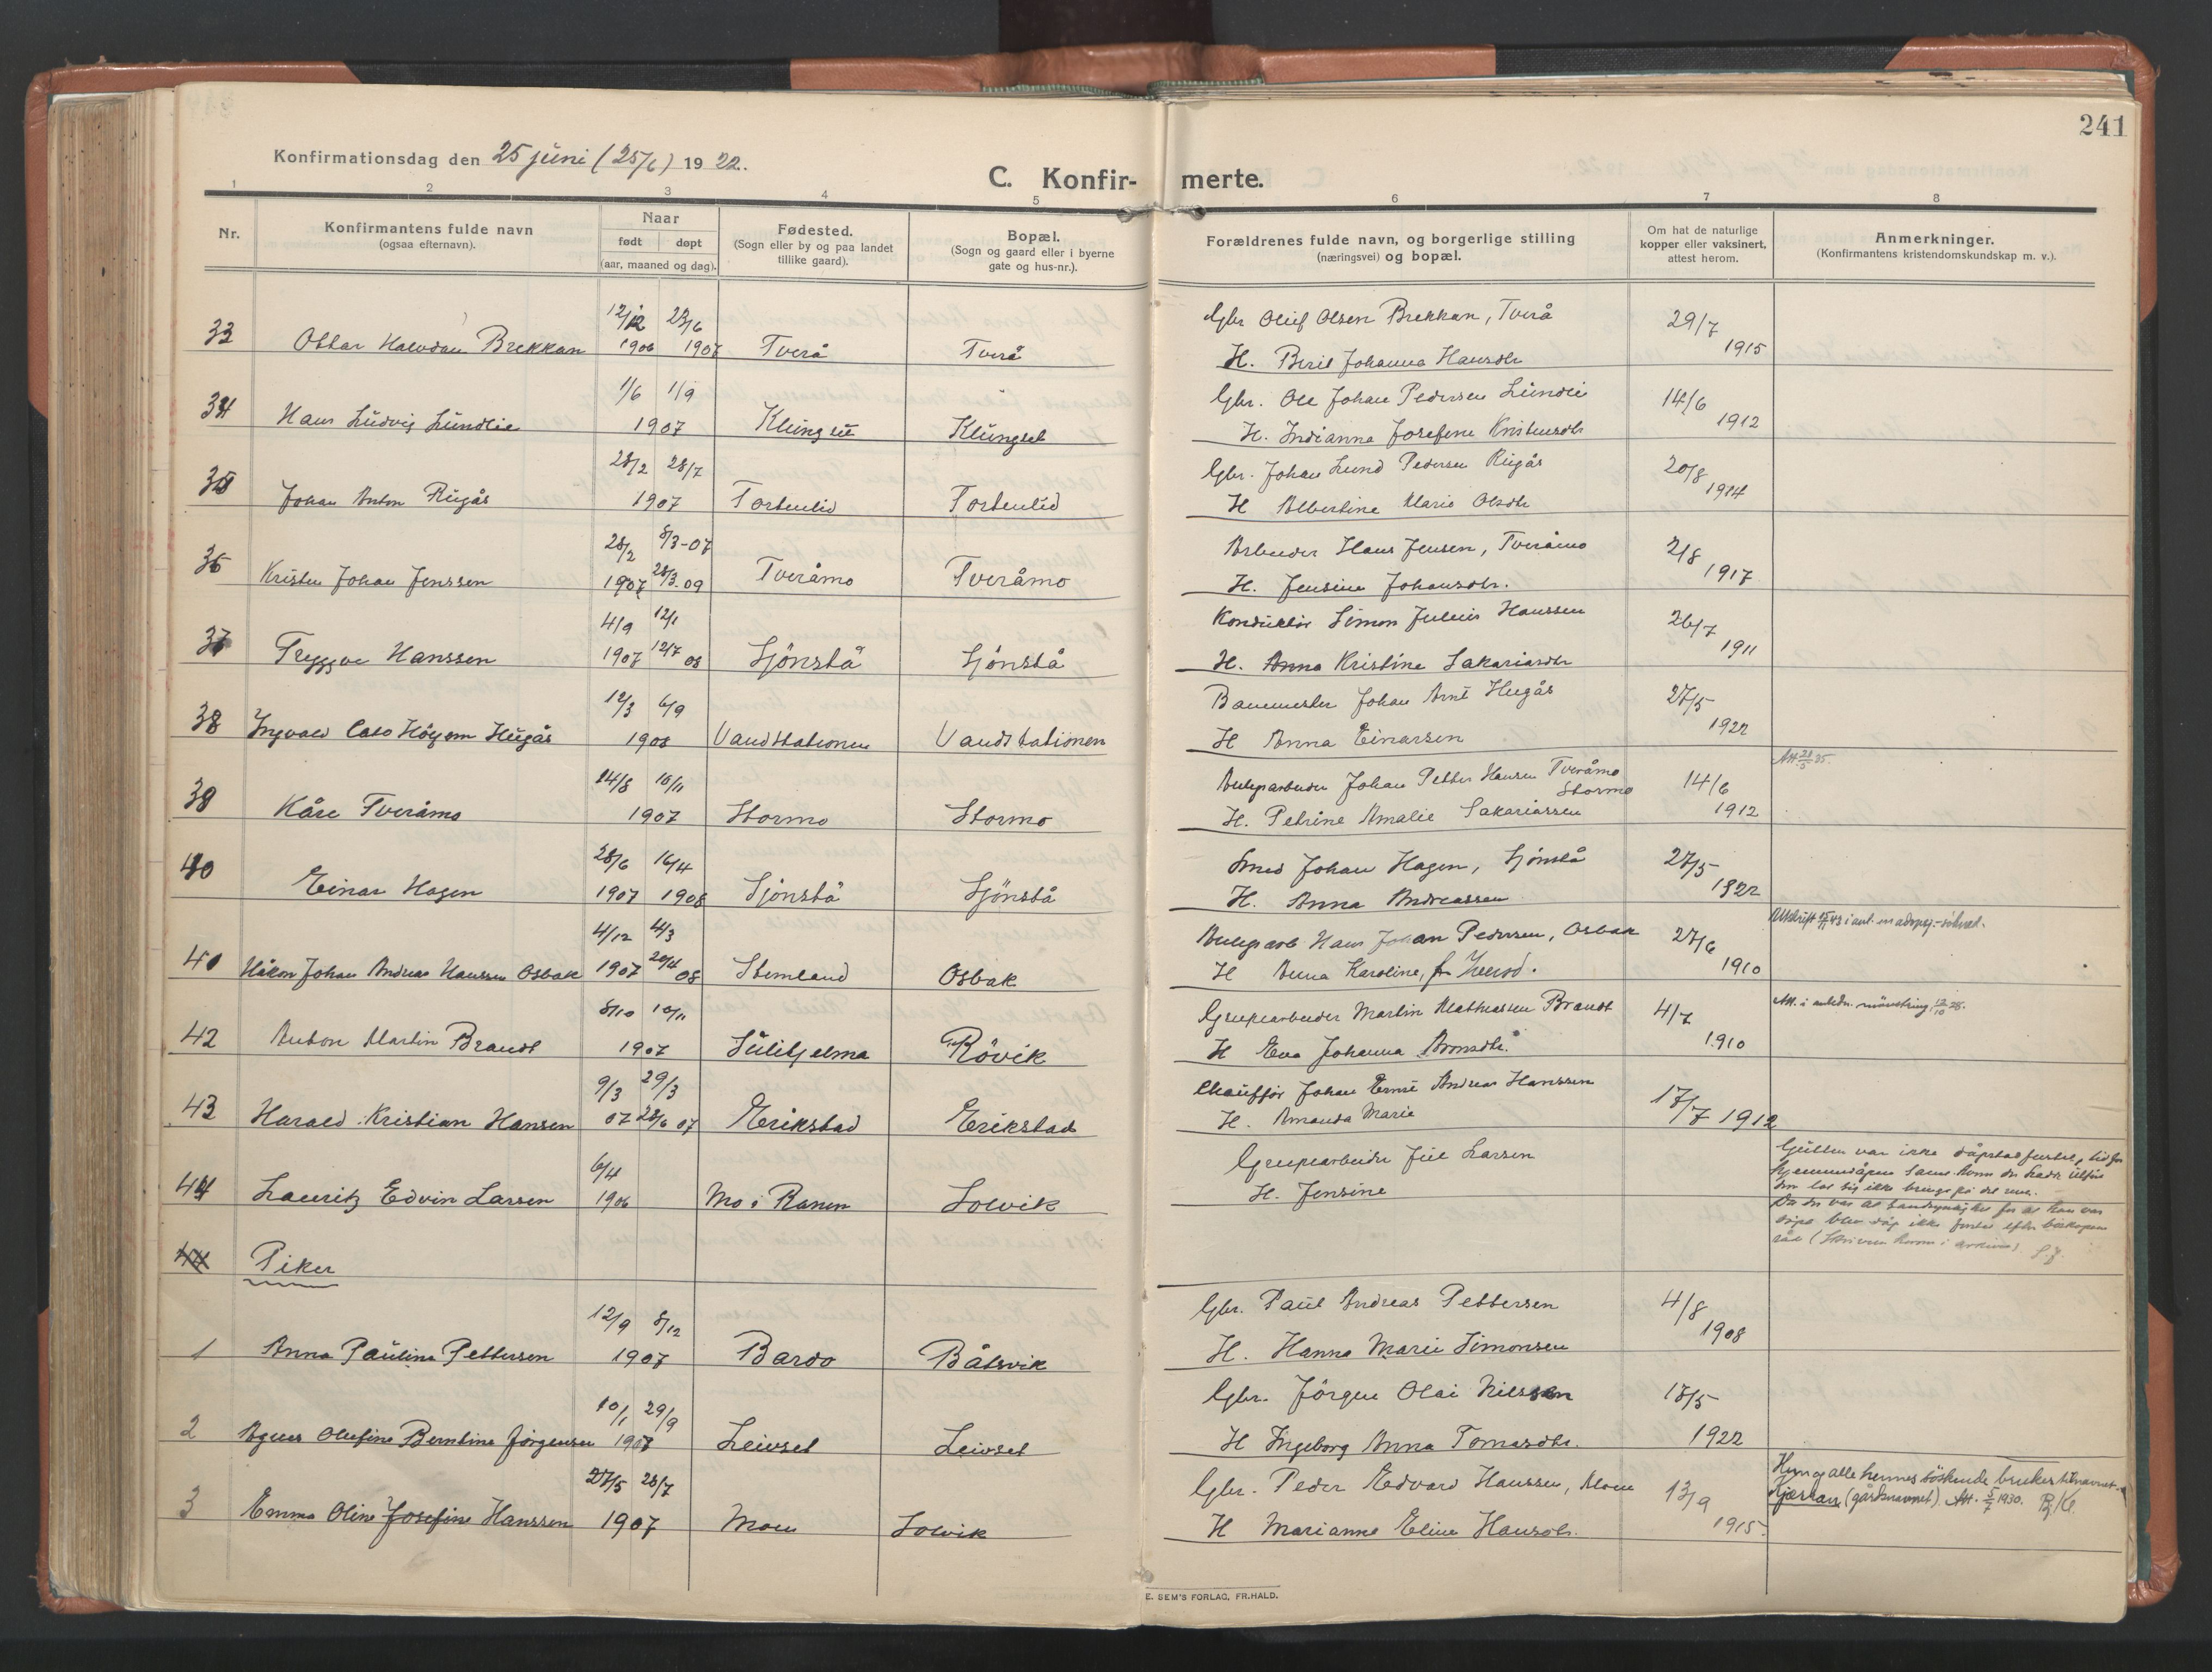 241
Konfirmationsdag den 25 juni (25/6) 1922.
C. Konfir- merte.
1 2 3 4 5 6 7 8
Nr.
Konfirmantens fulde navn
(ogsaa efternavn).
Naar
født døpt
(aar, maaned og dag).
Fødested.
(Sogn eller by og paa landet
tillike gaard).
Bopæl.
(Sogn og gaard eller i byerne
gate og hus-nr.).
Forældrenes fulde navn, og borgerlige stilling
(næringsvei) og bopæl.
Om hat de naturlige
kopper eller vaksinert,
attest herom.
Anmerkninger.
(Konfirmantens kristendomskundskap m. v.).
12/12 23/6 Gbr Oluf Olsen Brekkan, Tverå 29/7
33 Ottar Halvdan Brekkan 1906 1907 Tverå Tverå H. Beril Johanna Hansdtr 1915
1/6 1/9 Gbr. Ole Johan Pedersen Lundli 14/6
34 Hans Ludvig Lundlie 1907 Klungset Klungset H. Indianna Josefine Kristensdtr 1912
28/2 28/7 Gbr. Johan Lund Pedersen Rugås 20/8
35 Johan Anton Rugås 1907 Tortenlid Tortenlid H Albertine Marie Olsdtr 1914
28/2 8/3-07 Arbeider Hans Jensen, Tveråmo 2/8
36 Kristen Johan Jenssen 1907 28/3-09 Tveråmo Tveråmo H. Jensine Johansdtr. 1917
4/9 12/1 Konduktør Simon Julius Hanssen 26/7
37 Tryggve Hanssen 1907 12/7 08 Sjönstå Sjönstå H. Anna Kristine Sakariasdtr 1911
12/3 6/9 Banemester Johan Arnt Hugås 27/5
38 Ingvald Cato Höyem Hugås 1908 Vandstationen Vandstationen H Anna Einarsen 1922
14/8 10/11 Anlegsarbeider Johan Petter Hansen Tveråmo 14/6
Stormo
39 Kåre Tveråmo 1907 Stormo Stormo H. Petrine Amalie Sakariassen 1912
28/6 16/4 Smed Johan Hagen, Sjönstå 27/5
40 Einar Hagen 1907 1908 Sjönstå Sjönstå H. Anna Andreassen 1922
4/12 4/3 Anlegsarb Hans Johan Pedersen, Osbak 27/6
41 Håkon Johan Andreas Hanssen Osbak 1907 20/4 08 Stemland Osbak H Anna Karoline, f. 1910
8/10 10/11 Grupearbeider Martin Mathiassen Brandt 4/7 Att. i anledn. mönstring 12/10 28.
42 Anton Martin Brandt 1907 Sulitjelma Rövik H Eva Johanna Aronsdtr. 1910
9/3 29/3 Chauffør Johan Ernst Andreas Hanssen 17/7 1912
43 Harald Kristian Hansen 07 28/6 07 Erikstad Erikstad H. Amanda Marie
6/4 Grupearbeider Juel Larsen Gutten var ikke dåpsattestert, tid for
44 Lauritz Edvin Larsen 1906 Mo i Ranen Solvik H. Jensine
44 Piker
12/9 8/12 Gbr. Paul Andreas Pettersen 4/8
1 Anna Paulina Pettersen 1907 Bardo Båtsvik H. Hanna Marie Simonsen 1908
10/1 29/9 Gbr. Jörgen Olai Nilssen 18/5
2 Agnes Olufine Berntine Jörgensen 1907 Leivset Leivset H Ingeborg Anna Tomasdtr. 1922
27/5 28/7 Gbr. Peder Edvard Hanssen, Moen 13/9 Hun og alle hennes söskende bruker tilnavnet
Kjærran (gårdsnavnet). Att. 5/7 1930.
3 Emma Oline Josefine Hanssen 1907 Moen Solvik H Marianne Eline Hansdtr. 1915
E. SEM'S FORLAG, FR.HALD.